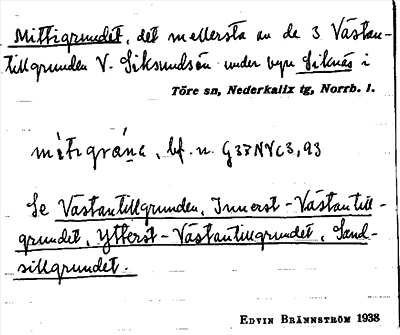 Mittigrundet, det mellersta av de 3 Västan-
tillgrunden V. Siksundsön under byn Siknäs i
Töre sn, Nederkalix tg, Norrb. l.
bf. n. G33NVC3,93
Se Västantillgrunden, Innerst-Västantill-
grundet, Ytterst-Västantillgrundet, Sand-
sillgrundet.
EDVIN BRÄNNSTRÖM 1938